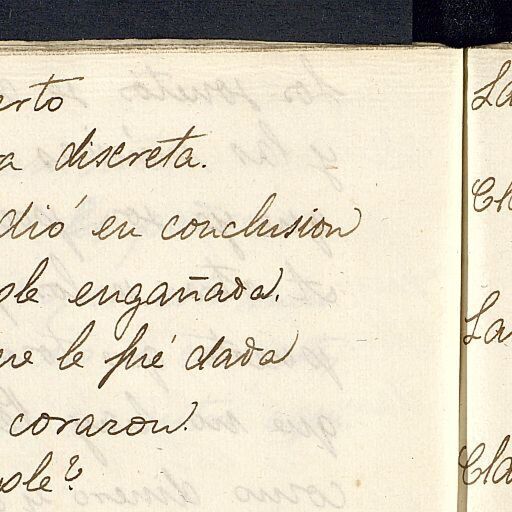 erto
a discreta.
dió en conclusion
ole engañada.
ue le fué dada
corazon.
ole?
La
Cl
La
Cla